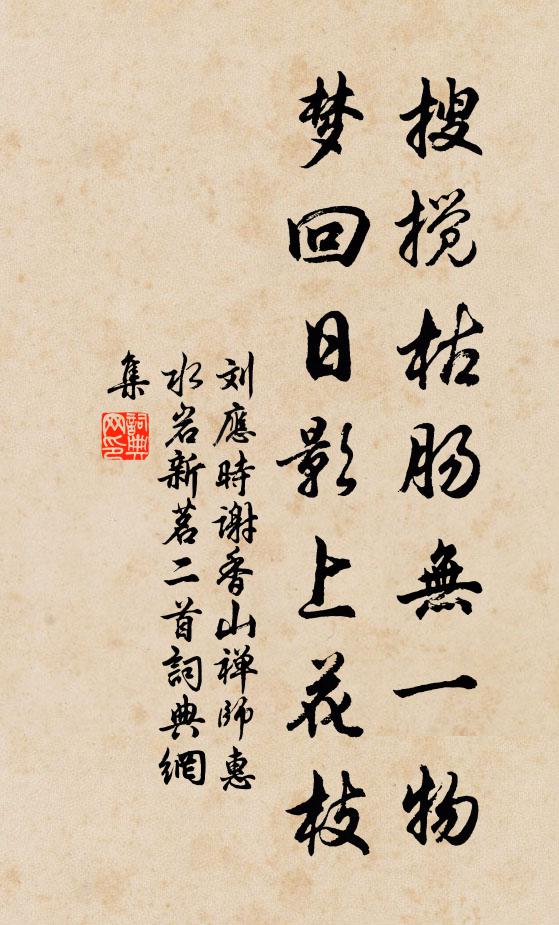 搜搅枯肠無一物
梦回日影上花枝
刘應時谢香山禅师惠
水岩新茗二首詞典網
集
詞典
网印